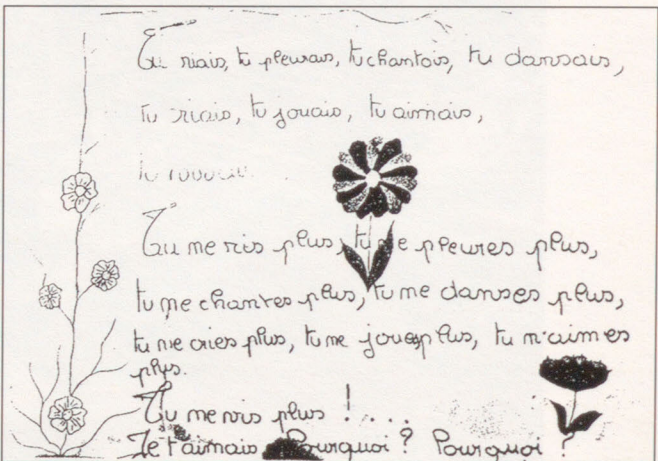 Tu riais, tu pleurais, tu chantais, tu dansais,
tu criais, tu jouais, tu aimais,
tu
Tu ne ris plus, tu ne pleures plus,
tu ne chantes plus, tu ne danses plus,
tu ne cries plus, tu ne joues plus, tu n'aimes
plus.
Tu ne vis plus ! . . .
Je t'aimais Pourquoi ? Pourquoi ?